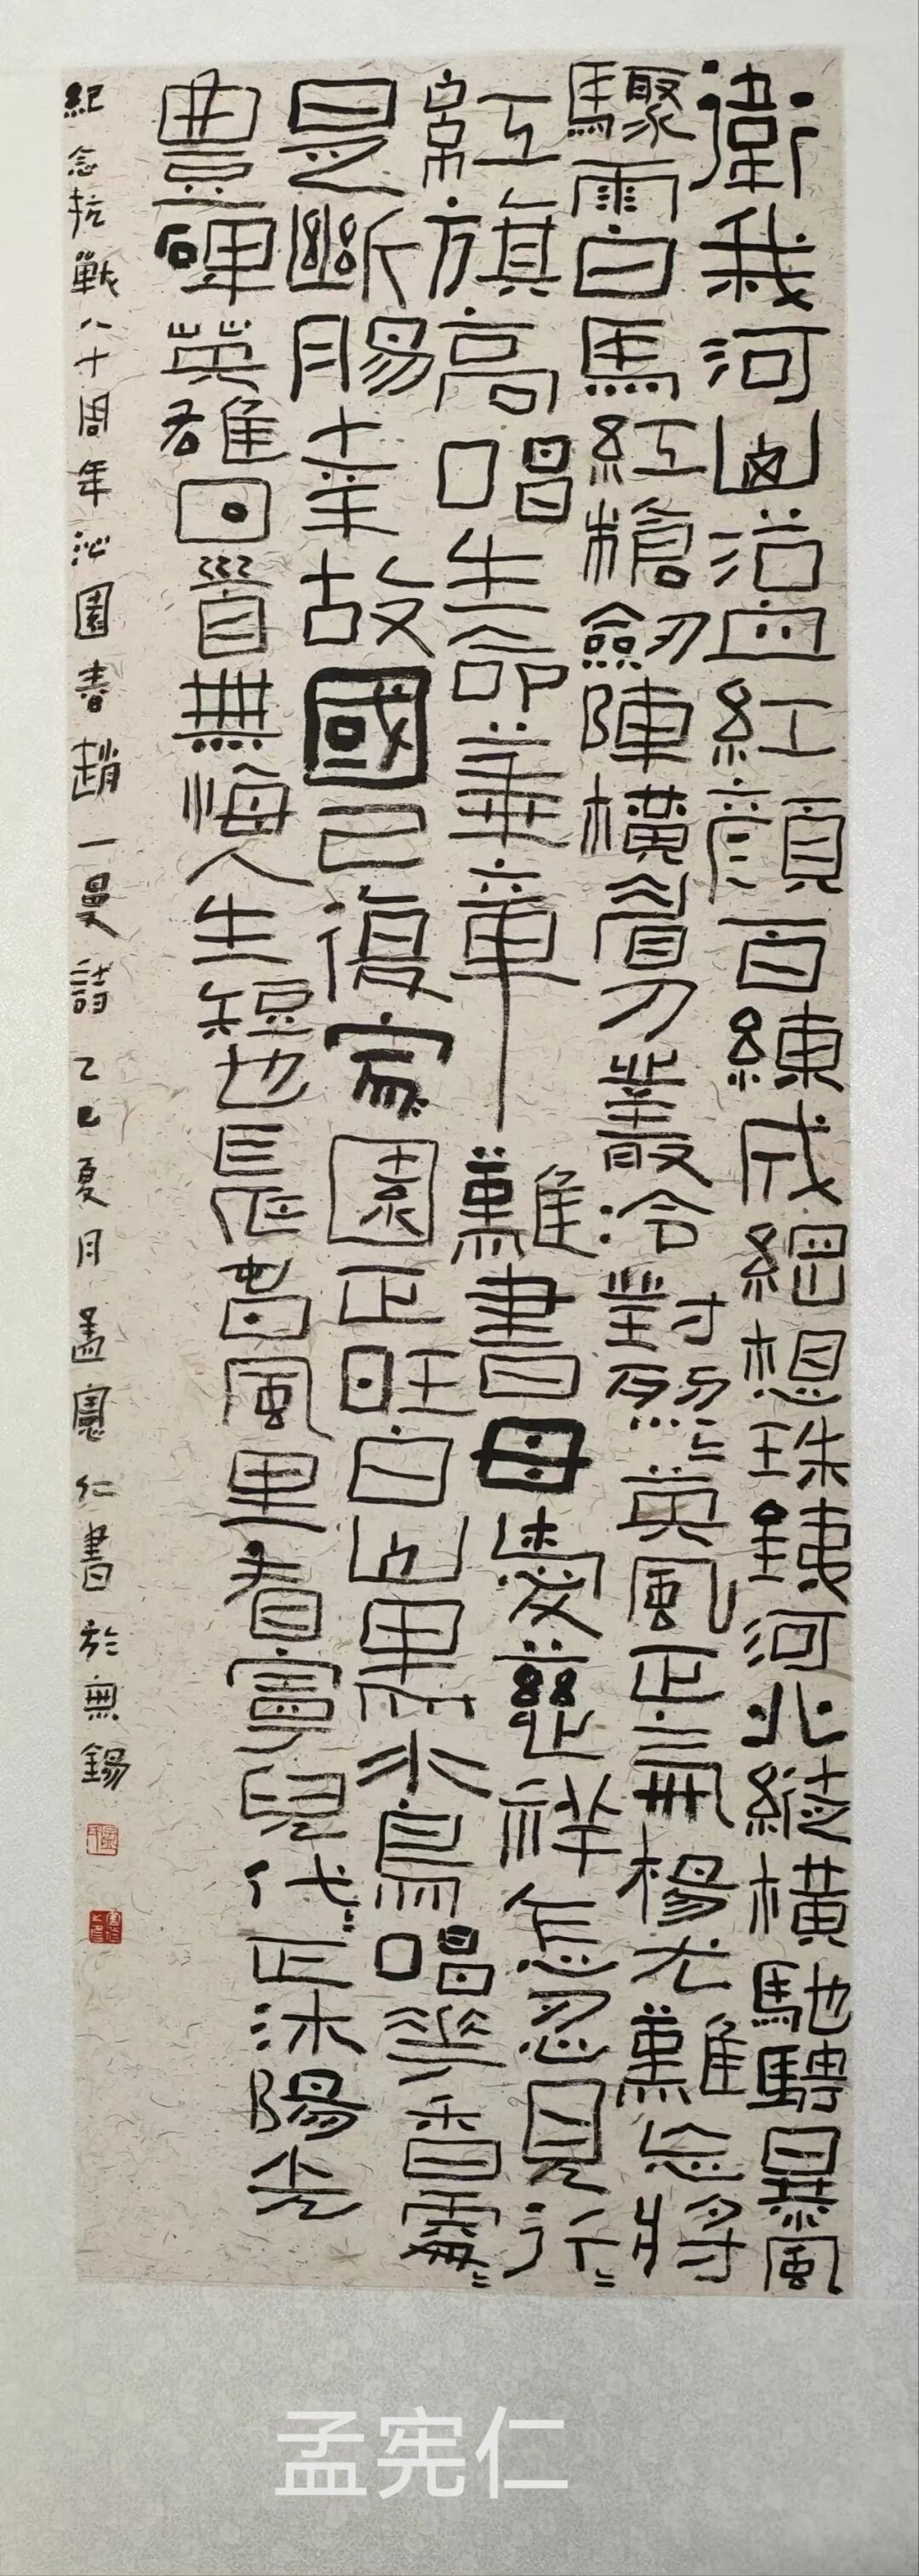 衛我河山浴血紅顏百練成綱想珠鐵河北縱橫馳騁暴風
驟雨白馬紅槍劍刃陣橫眉刀叢冷對照英風正楊尤難忘將
紅旗高唱生命華章難書母愛慈祥怎忍見行
是斷腸十業故國已復家園正旺白山黑水鳥唱花香
豐碑英雄回首無悔人生短也長春風里看寧兒代正沐陽光
紀念抗戰八十周年沁園春趙一曼詩乙巳夏月孟憲仁書於無錫
孟宪仁